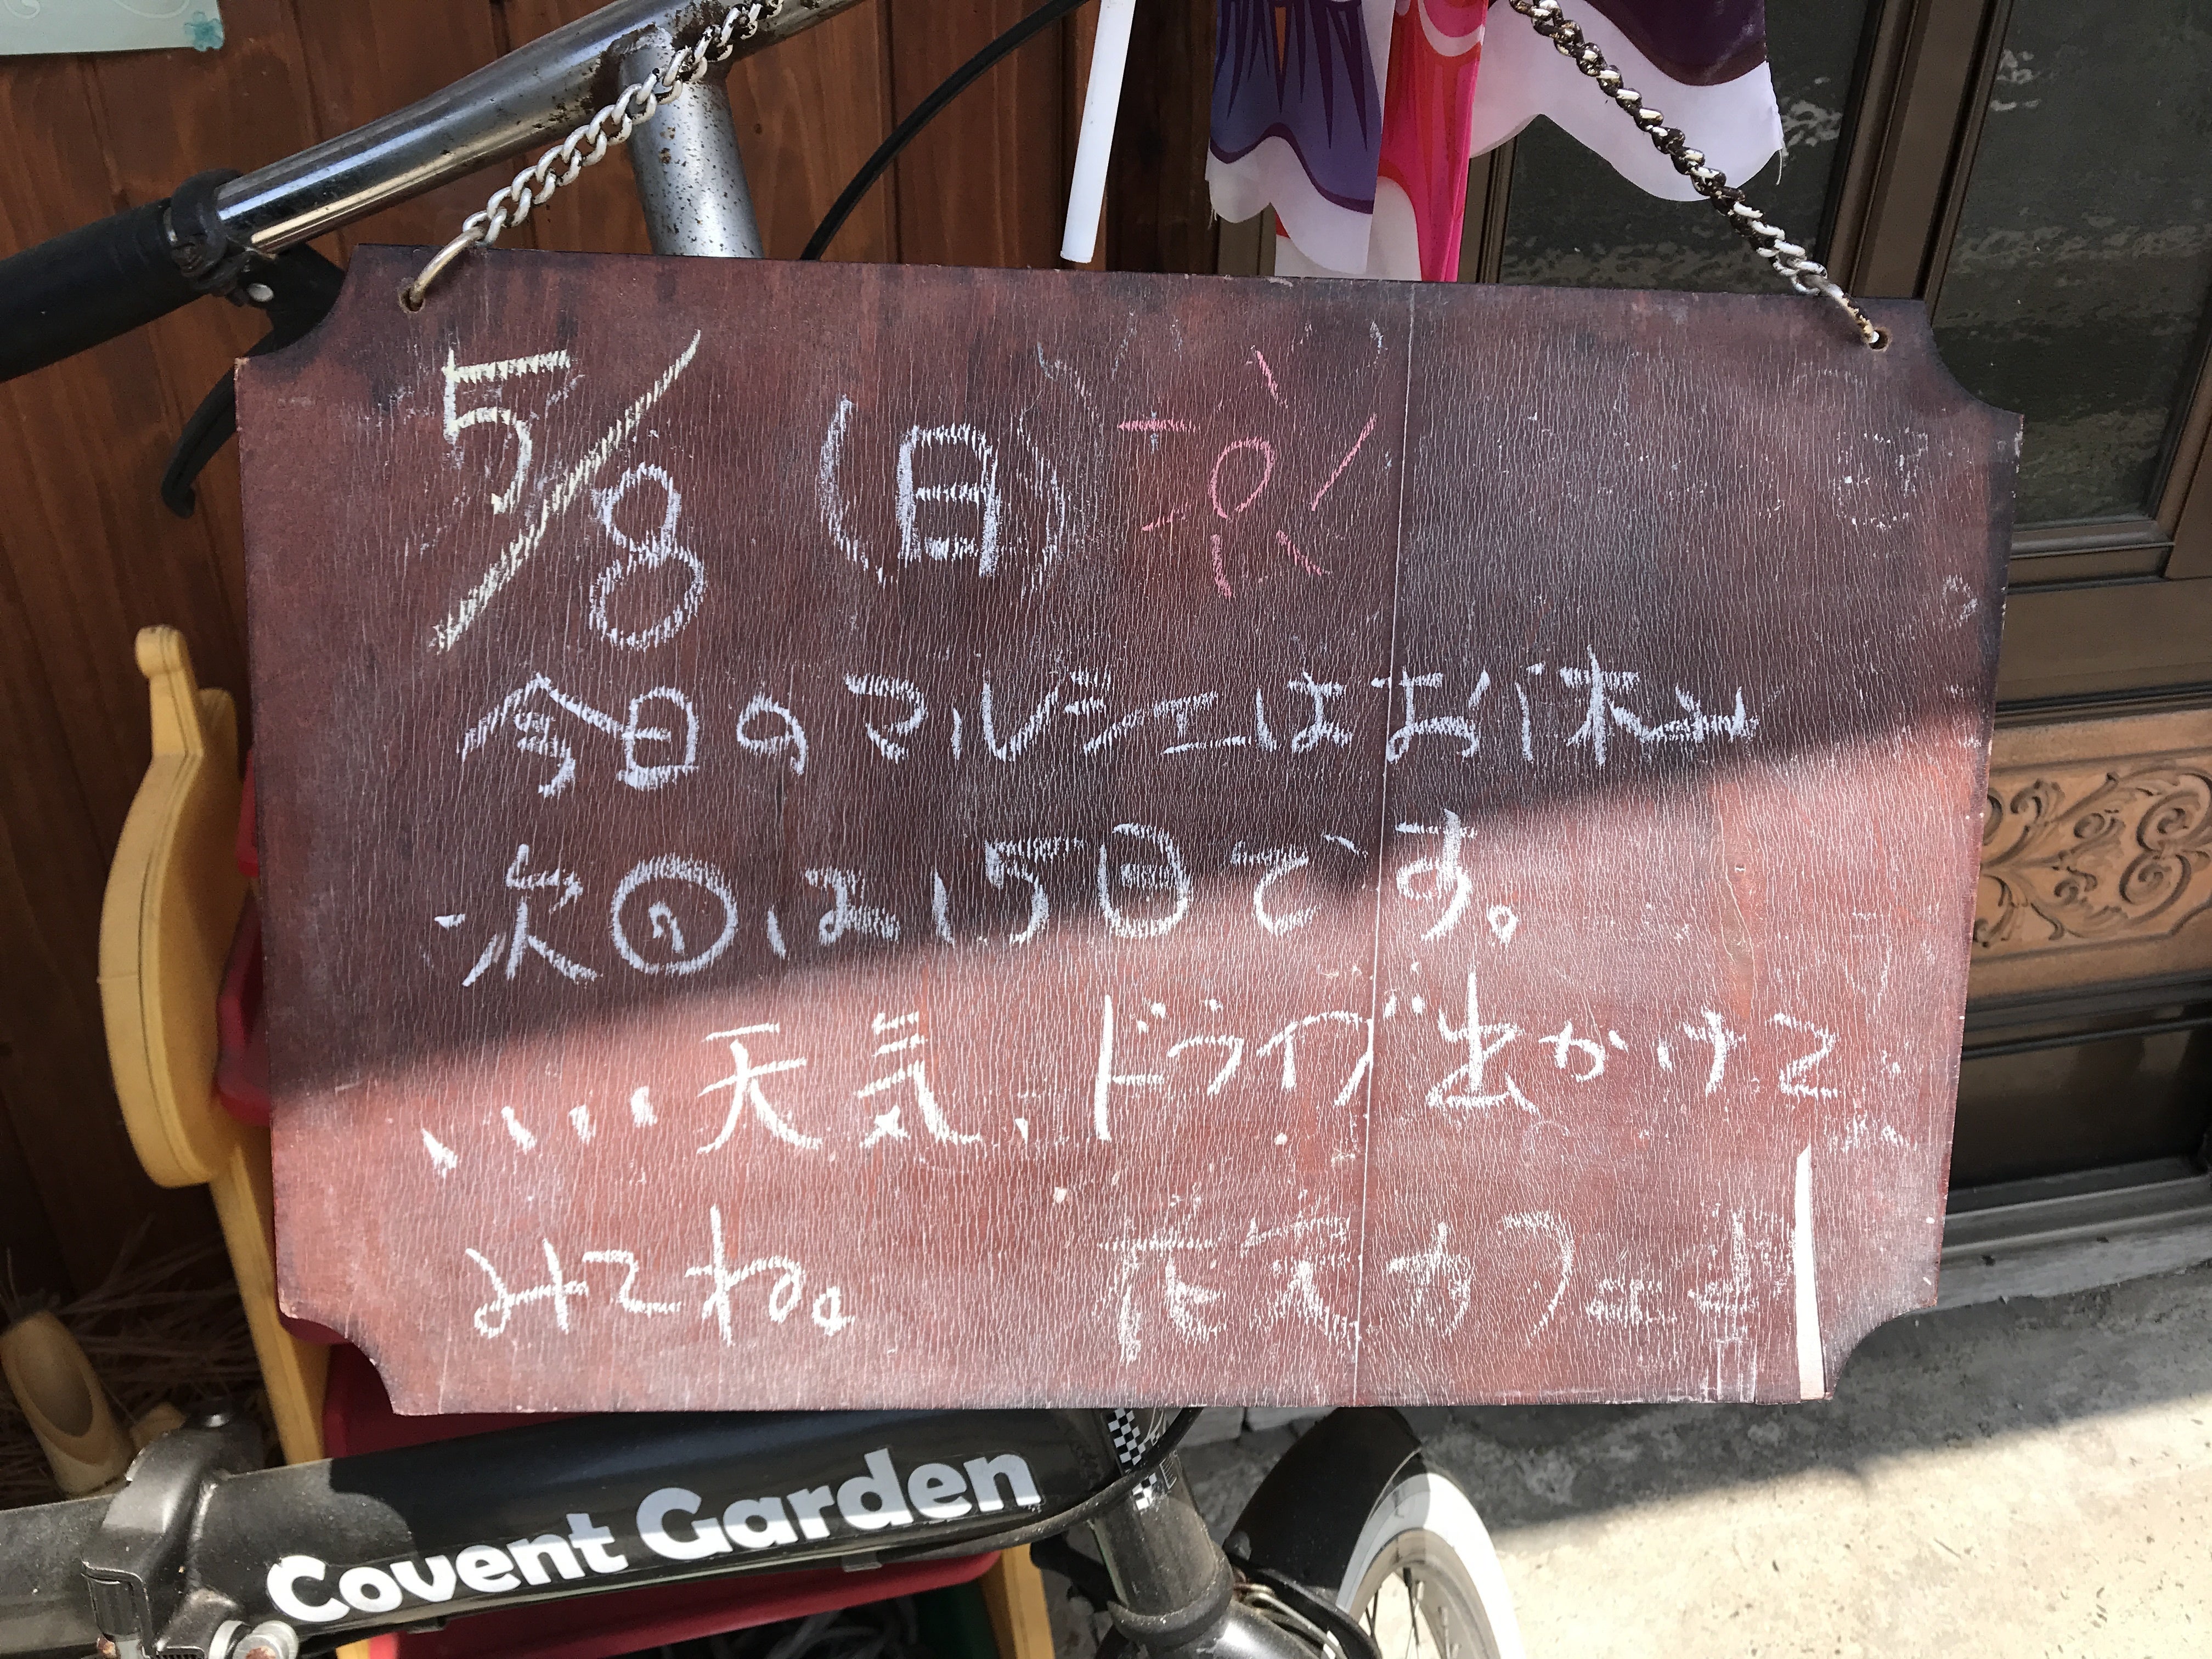 5/8 (日)
今日のマルシェはお休み
次回は15日です。
いい天気、ドライブ出かけて
みてね。 花笑カフェ
Covent Garden